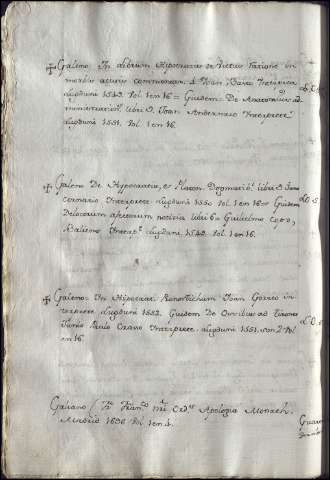 ✠ Galeno In librum Hypocratis de Victus ratione in
morbis acutis commentar. 4 Ioan. Vasæo Interprete
Lugduni 1549. Vol. 1 en 16 = Eiusdem De Anatomicis ad
ministrationib. libri 9. Ioan Andernaco Interprete
Lugduni 1551. Vol. 1 en 16.
✠ Galeni De Hypocratis, et Platon. Dogmatib. libri 9. Jano
Cornario Interprete Lugduni 1550 Vol. 1 en 16 = Eiusdem
De locorum afectorum notitia libri 6 Gulielmo Copo,
Basileno Interpr. Lugduni 1549. Vol. 1 en 16.
✠ Galeno In Hipocrat. Ioan Gorreo in
terprete Lugduni 1552. Eiusdem De Ossibus ad Tirones
Interprete Lugduni 1551. son 2 Vol.
en 16
Galiano (Fr. Franco. Apologia Monach.
Madrid Vol. 1 en 4.